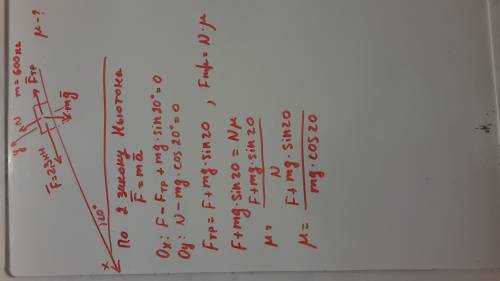 m = 600кг μ - ?
y N F̄тр
F̄ = 2,3кН mḡ
x 20°
По 2 закону Ньютона
F̄ = mā
Ox: F - Fтр + mg·sin20° = 0
Oy: N - mg·cos20° = 0
Fтр = F + mg·sin20 , Fтр = N·μ
F + mg·sin20 = Nμ
μ = F + mg·sin20 / N
μ = F + mg·sin20 / mg·cos20